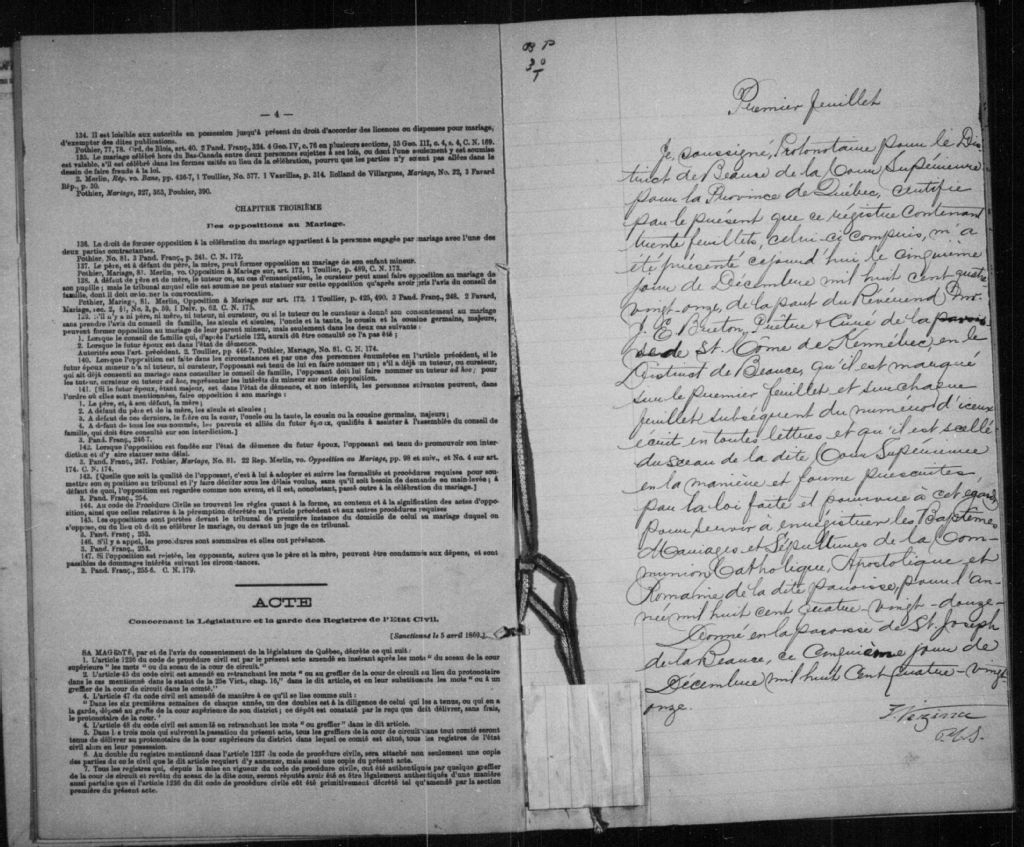 — 4 —
134. Il est loisible aux autorités en possession jusqu'à présent du droit d'accorder des licences ou dispenses pour mariage,
d'exempter des dites publications.
Pothier, 77, 78. Ord. de Blois, art. 40. 2 Pand. Franç., 324. 4 Geo. IV, c. 76 en plusieurs sections, 35 Geo. III, c. 4, s. 4, C. N. 169.
135. Le mariage célébré hors du Bas-Canada entre deux personnes sujettes à ses lois, ou dont l'une seulement y est soumise
est valable, s'il est célébré dans les formes usités au lieu de la célébration, pourvu que les parties n'y soient pas allées dans le
dessin de faire fraude à la loi.
2. Merlin, Rép. vo. Bans, pp. 436-7, 1 Toullier, No. 577. 1 Vazeilles, p. 314. Rolland de Villargues, Mariage, No. 22, 3 Favard
Rép., p. 30.
Pothier, Mariage, 327, 363, Pouhier, 390.
CHAPITRE TROISIÈME
Des oppositions au Mariage.
136. La droit de former opposition à la célébration du mariage appartient à la personne engagée par mariage avec l'une des
deux parties contractantes.
Pothier. No. 81. 3 Pand. Franç., p. 241. C. N. 172.
137. Le père, et à défaut du père, la mère, peut former opposition au mariage de son enfant mineur.
Pothier, Mariage, 81. Merlin. vo Opposition à Mariage sur, art. 173, 1 Toullier, p. 489, C. N. 173.
138. A défaut de père et de mère, le tuteur ou, au cas d'émancipation, le curateur peut aussi faire opposition au mariage de
son pupille; mais le tribunal auquel elle est soumise ne peut statuer sur cette opposition qu'après avoir pris l'avis du conseil de
famille, dont il doit ordonner la convocation.
Pothier, Mariage, 81. Merlin, Opposition à Mariage sur art. 173. 1 Toullier, p. 425, 490. 3 Pand. Franç., 248. 2 Favard,
Mariage, sec. 2, §1, No. 3, p. 59, 1 Delv. p. 62, C. N. 175.
139. S'il n'y a ni père, ni mère, ni tuteur, ni curateur, ou si le tuteur ou le curateur a donné son consentement au mariage
sans prendre l'avis du conseil de famille, les aïeuls et aïeules, l'oncle et la tante, le cousin et la cousine germains, majeurs,
peuvent former opposition au mariage de leur parent mineur, mais seulement dans les deux cas suivants:
1. Lorsque le conseil de famille qui, d'après l'article 122, aurait dû être consulté ne l'a pas été;
2. Lorsque le futur époux est dans l'état de démence.
Autorités sous l'art précédent. 2. Toullier, pp. 446-7. Pothier, Mariage, No. 81. C. N. 174.
140. Lorsque l'opposition est faite dans les circonstances et par une des personnes énumérées en l'article précédent, si le
futur époux mineur n'a ni tuteur, ni curateur, l'opposant est tenu de lui en faire nommer un; s'il a déjà un tuteur, ou curateur,
qui ait déjà consenti au mariage sans consulter le conseil de famille, l'opposant doit lui faire nommer un tuteur ad hoc; pour
les tuteur, curateur ou tuteur ad hoc, représenter les intérêts du mineur sur cette opposition.
141. [Si le futur époux, étant majeur, est dans l'état de démence, et non interdit, les personnes suivantes peuvent, dans
l'ordre où elles sont mentionnées, faire opposition à son mariage:
1. Le père, et, à son défaut, la mère;
2. A défaut du père et de la mère, les aïeuls et aïeules;
3. A défaut de ces derniers, le frère ou la sœur, l'oncle ou la tante, le cousin ou la cousine germains, majeurs;
4. A défaut de tous les sus-nommés, les parents et alliés du futur époux, qualifiés à assister à l'assemblée du conseil de
famille, qui doit être consulté sur son interdiction.]
3. Pand. Franç., 246 7.
142. Lorsque l'opposition est fondée sur l'état de démence du futur époux, l'opposant est tenu de promouvoir son inter-
diction et d'y aire statuer sans délai.
3. Pand. Franç., 247. Pothier, Mariage, No. 81. 22 Rep. Merlin, vo. Opposition au Mariage, pp. 98 et suiv., et No. 4 sur art.
174. C. N. 174.
143. [Quelle que soit la qualité de l'opposant, c'est à lui à adopter et suivre les formalités et procédures requises pour sou-
mettre son opposition au tribunal et l'y faire décider sous les délais voulus, sans qu'il soit besoin de demande en main-levée; à
défaut de quoi, l'opposition est regardée comme non avenu, et il est, nonobstant, passé outre à la célébration du mariage.]
3. Pand. Franç., 254.
144. Au code de Procédure Civile se trouvent les règles quant à la forme, au contenu et à la signification des actes d'oppo-
sition, ainsi que celles relatives à la péremption décrétée en l'article précédent et aux autres procédures requises
145. Les oppositions sont portées devant le tribunal de première instance du domicile de celui au mariage duquel on
s'oppose, ou du lieu où doit se célébrer le mariage, ou devant un juge de ce tribunal.
3. Pand. Franç., 253.
146. S'il y a appel, les procédures sont sommaires et elles ont préséance.
3. Pand. Franç., 253.
147. Si l'opposition est rejetée, les opposants, autres que le père et la mère, peuvent être condamnés aux dépens, et sont
passibles de dommages intérêts suivant les circonstances.
3. Pand. Franç., 255-6. C. N. 179.
ACTE
Concernant la Législature et la garde des Registres de l'Etat Civil.
[Sanctionné le 5 avril 1869.]
SA MAGESTÉ, par et de l'avis du consentement de la législature de Québec, décrète ce qui suit:
1. L'article 1236 du code de procédure civil est par le présent acte amendé en insérant après les mots "du sceau de la cour
supérieure" les mots "ou du sceau de la cour de circuit."
2. L'article 45 du code civil est amendé en retranchant les mots "ou au greffier de la cour de circuit au lieu du protonotaire
dans le cas mentionnés dans le statut de la 25e Vict, chap. 16," dans le dit article, et en leur substituants les mots "ou à un
greffier de la cour de circuit dans le comté."
4. L'article 47 du code civil est amendé de manière à ce qu'il se lise comme suit:
"Dans les six premières semaines de chaque année, un des doubles est à la diligence de celui qui les a tenus, ou qui en a
la garde, déposé au greffe de la cour supérieure de son district; ce dépôt est constaté par le reçu que doit délivrer, sans frais,
le protonotaire de la cour."
4. L'article 48 du code civil est amendé en retranchant les mots "ou greffier" dans le dit article.
5. Dans les trois mois qui suivront la passation du présent acte, tous les greffiers de la cour de circuit dans tout comté seront
tenus de délivrer au protonotaire de la cour supérieure du district dans lequel ce comté est situé, tous les registres de l'état
civil alors en leur possession.
6. Au double du registre mentionné dans l'article 1237 du code de procédure civile, sera attaché non seulement une copie
des parties du code civil que le dit article requiert d'y annexer, mais aussi une copie du présent acte.
7. Tous les registres qui, depuis la mise en vigueur du code de procédure civile, ont été authentiqués par quelque greffier
de la cour de circuit et revêtu du sceau de la dite cour, seront réputés avoir été et être légalement authentiqués d'une manière
aussi parfaite que si l'article 1236 du dit code de procédure civile eût été primitivement décrété tel qu'amendé par la section
première du présent acte.
Premier feuillet
Je, soussigné, Protonotaire pour le Dis-
trict de Beauce de la Cour Supérieure
pour la Province de Québec, certifie
par le présent que ce régistre contenant
trente feuillets, celui-ci compris, m'a
été présenté cejourd'hui le cinquième
jour de Décembre mil huit cent quatre
vingt-onze de la part du Révérend Mr.
J. E. Breton, Prêtre & Curé de la parois
se de St. Côme de Kennebec, en le
District de Beauce, qu'il est marqué
sur le premier feuillet et sur chaque
feuillet subséquent du numéro d'iceux
écrit en toutes lettres et qu'il est scellé
du sceau de la dite Cour Supérieure
en la manière et forme prescrites
par la loi faite et pourvue à cet égard
pour servir à enregistrer les Baptêmes
Mariages et Sépultures de la Com-
munion Catholique, Apostolique et
Romaine de la dite paroisse, pour l'an-
née mil huit cent quatre-vingt-douze.
Donné en la paroisse de St. Joseph
de la Beauce, ce cinquième jour de
Décembre mil huit cent quatre-vingt
onze.
Vézina
P.C.S.